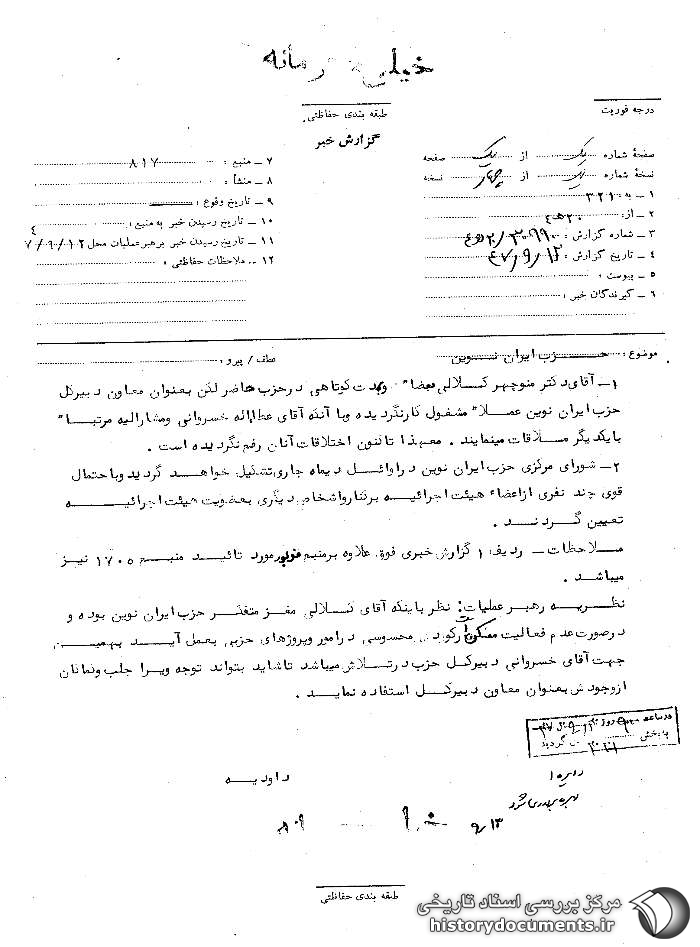 خیلی محرمانه
طبقه بندی حفاظتی
درجه فوریت
گزارش خبر
صفحهٔ شماره یک از یک صفحه
نسخهٔ شماره از چهار نسخه
۱ــ به: ۳۲۱
۲ــ از: ۲۰ هـ ۴
۳ــ شماره گزارش: ۳۰۹۹۰/۲۰ هـ ۴
۴ــ تاریخ گزارش: ۴۷/۹/۱۲
۵ــ پیوست:
۶ــ گیرندگان خبر:
۷ــ منبع: ۸۱۷
۸ــ منشأ:
۹ــ تاریخ وقوع:
۱۰ــ تاریخ رسیدن خبر به منبع:
۱۱ــ تاریخ رسیدن خبر برهبرعملیات محل ۴۷/۹/۱۲
۱۲ــ ملاحظات حفاظتی:
موضوع: حزب ایران نوین
عطف / پیرو:
۱ــ آقای دکتر منوچهر کلالی بعضا" و بمدت کوتاهی در حزب حاضر لکن بعنوان معاون دبیرکل
حزب ایران نوین عملا" مشغول کار نگردیده و با آنکه آقای عطاالله خسروانی ومشارالیه مرتبا"
بایکدیگر ملاقات مینمایند . معهذا تاکنون اختلافات آنان رفع نگردیده است .
۲ــ شورای مرکزی حزب ایران نوین در اوائل دیماه جاری تشکیل خواهد گردید وباحتمال
قوی چند نفری از اعضاء هیئت اجرائیه برکنار واشخاص دیگری بعضویت هیئت اجرائیه
تعیین گردند .
ملاحظات ــ ردیف ۱ گزارش خبری فوق علاوه بر منبع مزبور مورد تائید منبع ۱۷۰۵ نیز
میباشد .
نظریه رهبر عملیات: نظر باینکه آقای کلالی مغز متفکر حزب ایران نوین بوده و
درصورت عدم فعالیت ممکن است رکود محسوسی در امور وپروژهای حزبی بعمل آید بهمین
جهت آقای خسروانی دبیرکل حزب در تلاش میباشد تا شاید بتواند توجه ویرا جلب وکماکان
از وجودش بعنوان معاون دبیرکل استفاده نماید .
داودیه
بهره برداری شود
۹/۱۳
طبقه بندی حفاظتی
مرکز بررسی اسناد تاریخی
historydocuments.ir